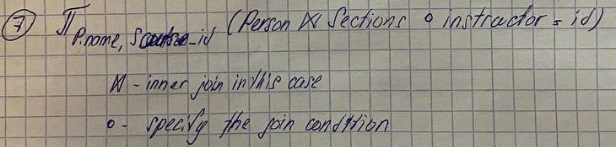 ⑦ π P.name, S.course_id (Person ⋈ Sections ∘ instructor = id)
⋈ - inner join in this case
∘ - specify the join condition